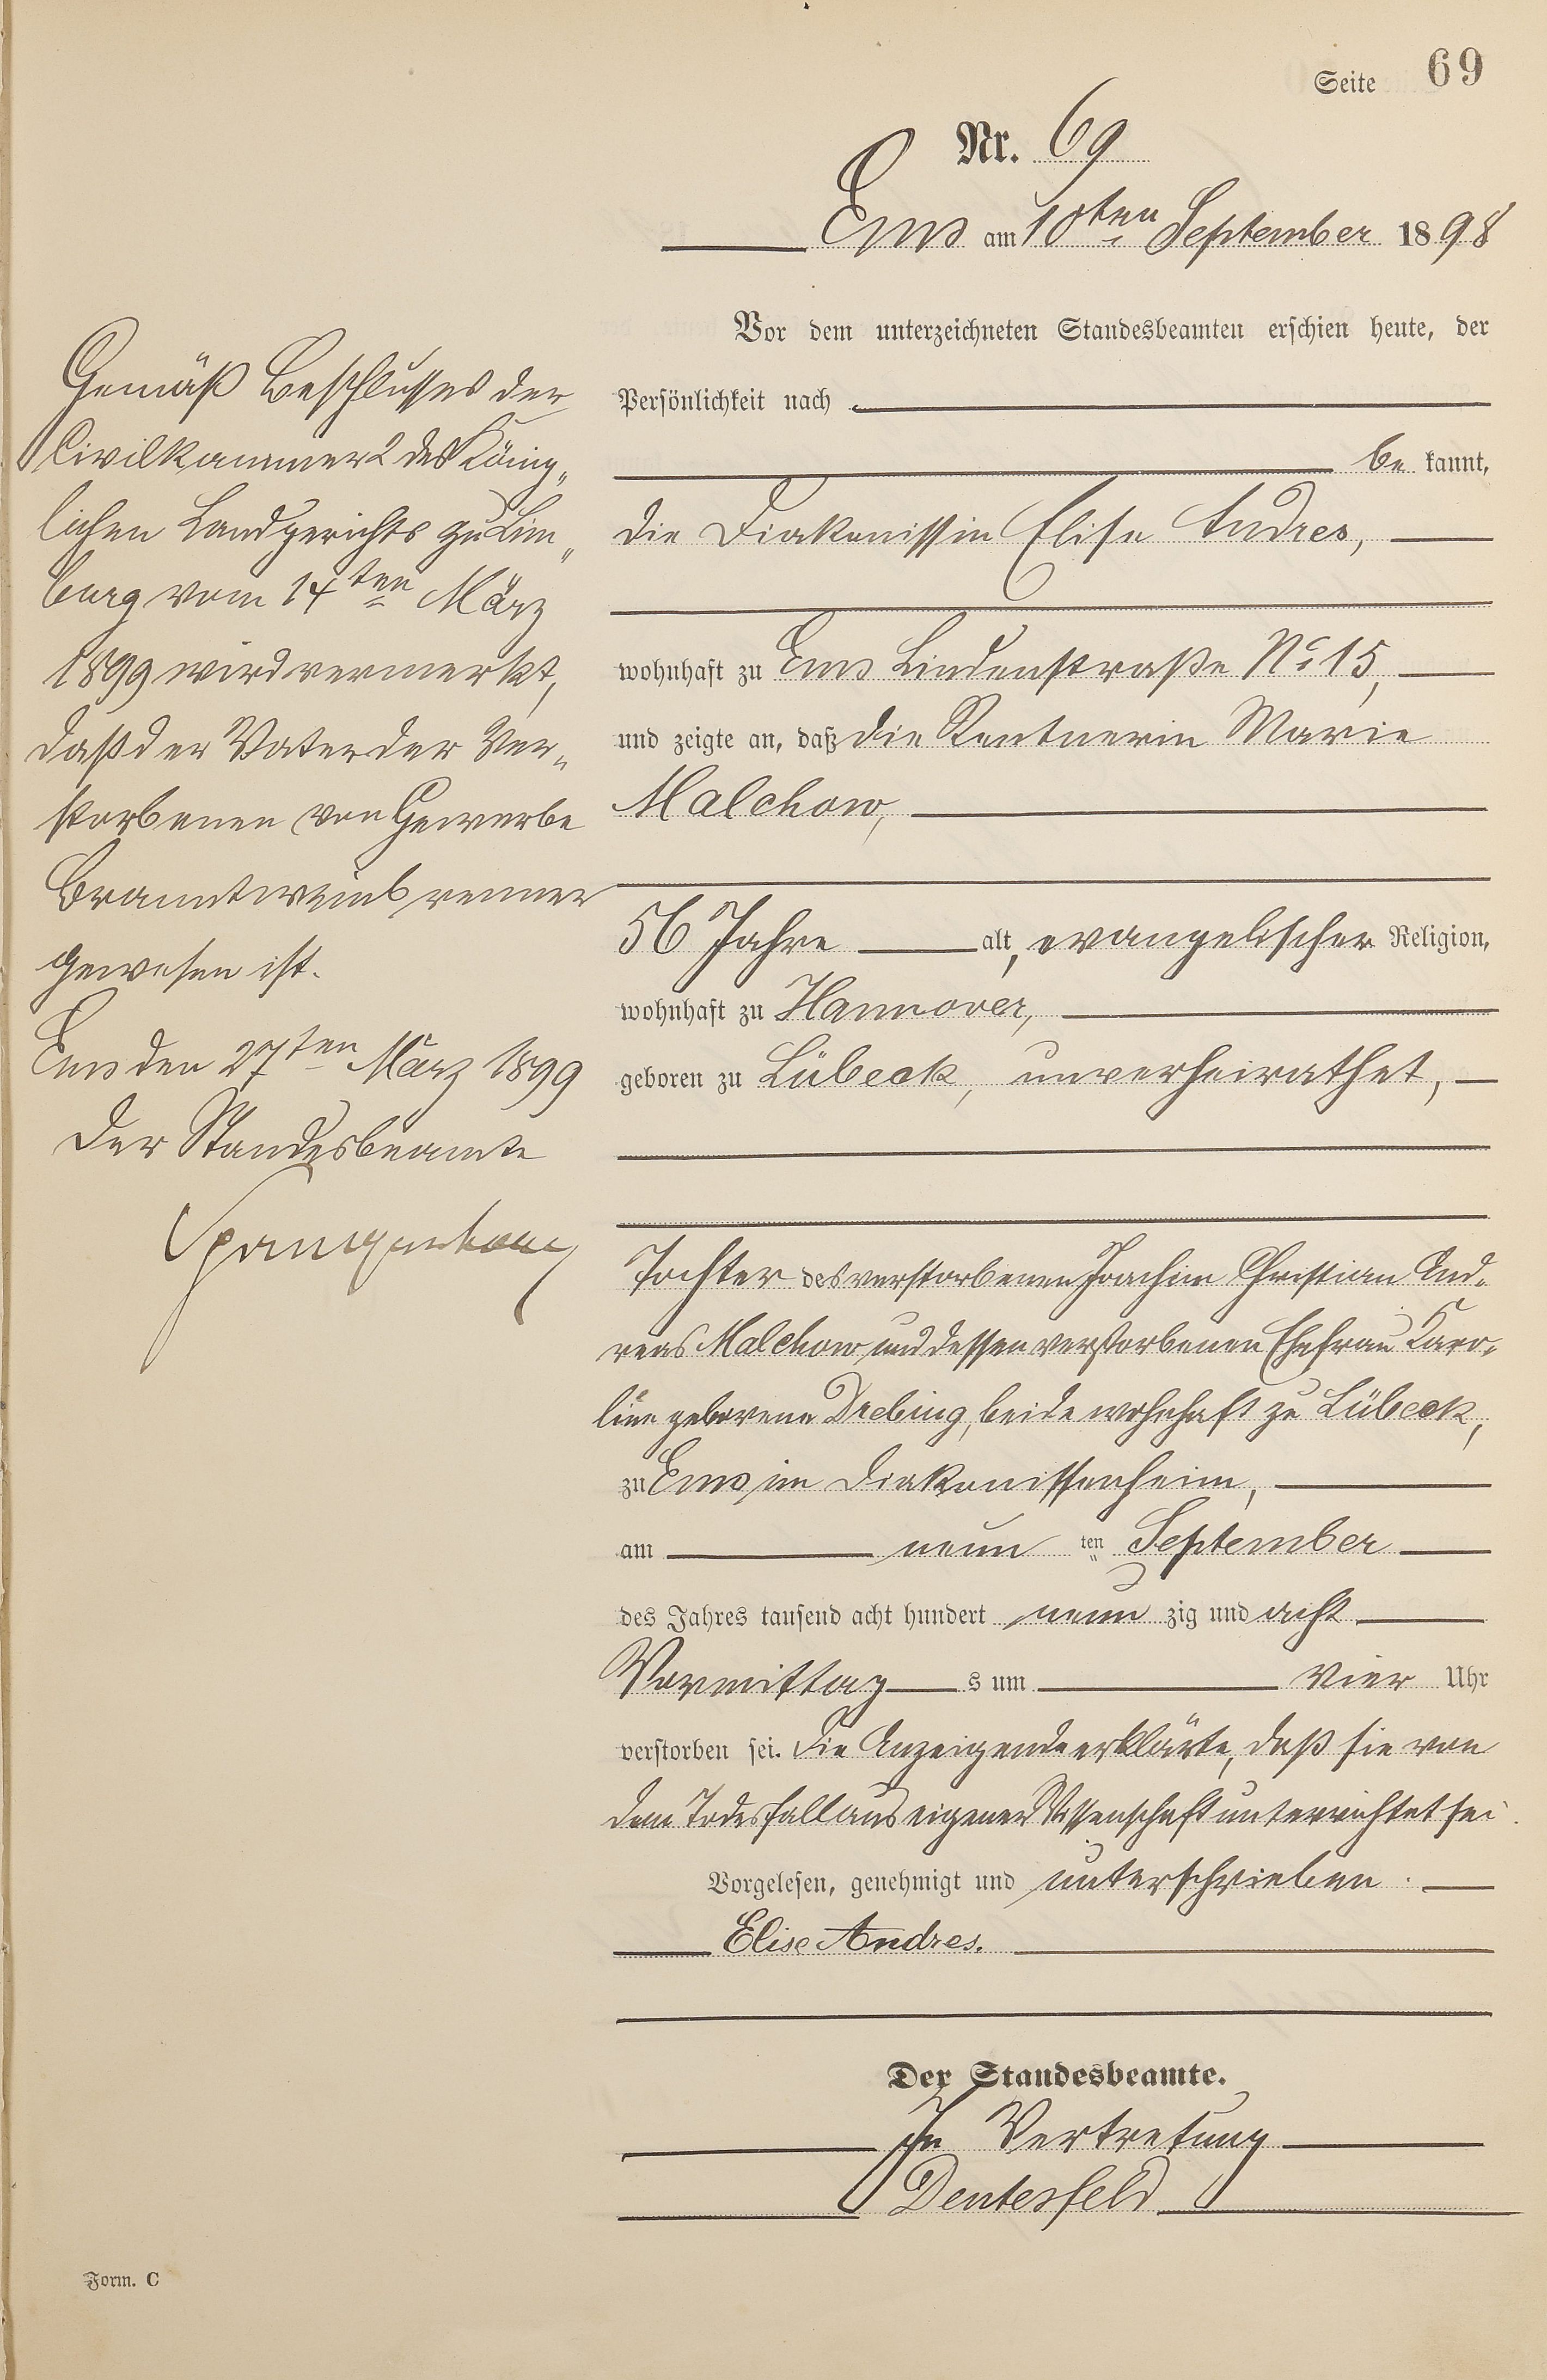 Seite 69
Nr. 69
Ems am 10ten September 1898
Vor dem unterzeichneten Standesbeamten erschien heute, der
Persönlichkeit nach
be kannt,
die Diakonissin Elise Andres,
wohnhaft zu Ems Lindenstraße No 15,
und zeigte an, daß die Rentnerin Marie
Malchow,
56 Jahre alt, evangelischer Religion,
wohnhaft zu Hannover,
geboren zu Lübeck, unverheirathet,
Tochter des verstorbenen Joachim Christian And-
reas Malchow und dessen verstorbenen Ehefrau Karo-
line geborene Drebing, beide wohnhaft zu Lübeck,
zu Ems im Diakonissenheim,
am neun ten September
des Jahres tausend acht hundert neun zig und acht
Vormittag s um vier Uhr
verstorben sei. Die Anzeigende erklärte, daß sie von
dem Todesfall aus eigener Wissenschaft unterrichtet sei.
Vorgelesen, genehmigt und unterschrieben.
Elise Andres.
Der Standesbeamte.
In Vertretung
Deutesfeld
Gemäß Beschlusses der
Civilkammer 2 des König„
lichen Landgerichts zu Lim„
burg vom 14ten März
1899 wird vermerkt,
daß der Vater der Ver„
storbenen von Gewerbe
Branntweinbrenner
gewesen ist.
Ems den 27ten März 1899
Der Standesbeamte
Spangenberg
Form. C